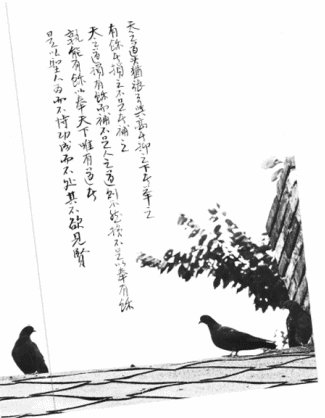 天之道其猶張弓與高者抑之下者舉之
有餘者損之不足者補之
天之道損有餘而補不足人之道則不然損不足以奉有餘
孰能有餘以奉天下唯有道者
是以聖人為而不恃功成而不处其不欲見賢